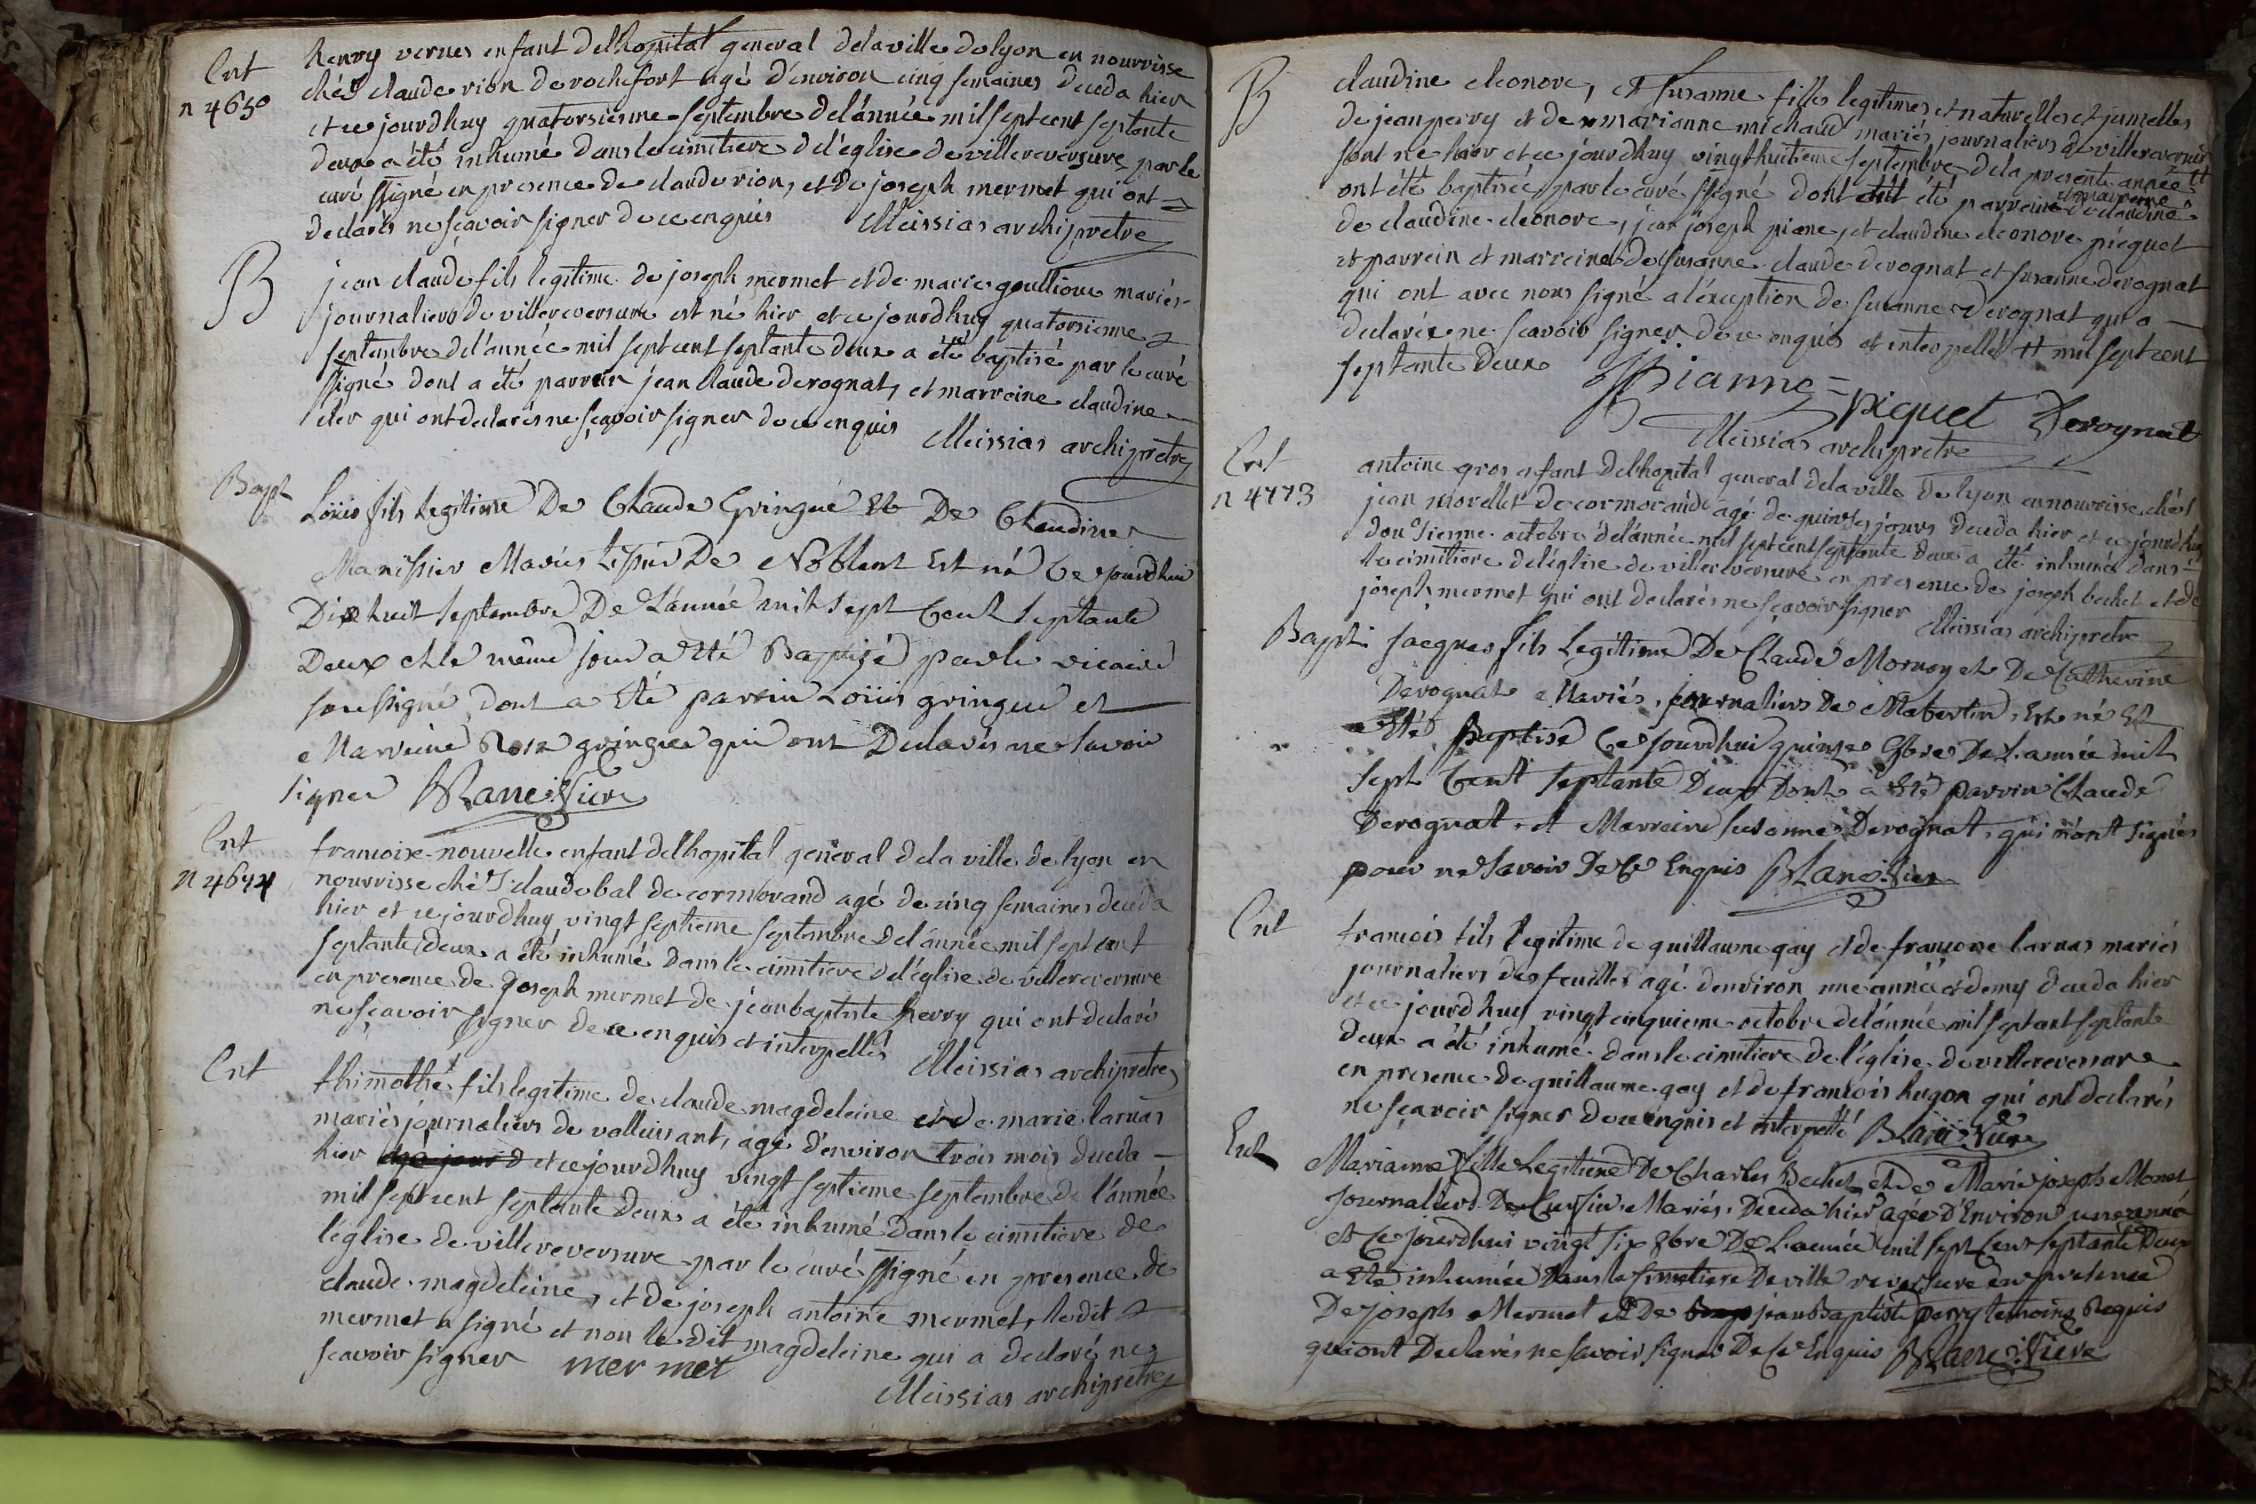 Ent
n 4650
henry vernes enfant delhopital general delaville de lyon en nourrisse
chés claude rion de rochefort agé d'environ cinq semaines deceda hier
et ce jourdhuy quatorsiesme septembre del'année mil sept cent septante
deux a été inhumé dans le cimitiere de l'église de villereversure par le
curé ssigné en presence de claude rion, et de joseph mermet qui ont
declarés ne sçavoir signer de ce enquis Meissias archipretre
B
jean claude fils legitime de joseph mermet et de marie goullioux mariés
journaliers de villereversure est né hier et ce jourdhuy quatorsieme
septembre de l'année mil sept cent septante deux a été baptisé par le curé
ssigné dont a été parrein jean claude derognat, et marreine claudine
cler qui ont declarés ne sçavoir signer de ce enquis Meissias archipretre
Bapt
Loüis fils Legitime De Claude Gringue Et De Claudine
Manissier Mariés De Noblent Est né Ce jourdhui
Dix huit septembre De L'année mil sept Cent septante
Deux et le même jour a Eté Baptisé par le vicaire
soussigné dont a Eté parrin Loüis gringue et
Marreine Rose gringue qui ont Declarés ne savoir
signer Blanc Vicre
Ent
n 4644
francoise nouvelle enfant delhopital general dela ville de lyon en
nourrisse chés claude bal de cormorand agé de cinq semaines deceda
hier et ce jourdhuy vingt septieme septembre del'année mil sept cent
septante deux a été inhumé dans le cimitiere de l'église de villereversure
en presence de joseph mermet de jean baptiste perry qui ont declaré
ne sçavoir signer de ce enquis et interpellés Meissias archipretre
Ent
thimothé fils legitime de claude magdeleine et de marie larnas
mariés journaliers de valleissant, agé d'environ trois mois deceda
hier et ce jourdhuy vingt septieme septembre de l'année
mil sept cent septante deux a été inhumé dans le cimitiere de
l'église de villereversure par le curé ssigné en presence de
claude magdeleine, et de joseph antoine mermet, le dit
mermet a signé et non le dit magdeleine qui a declaré ne
scavoir signer mer met
Meissias archipretre
B
claudine eleonore, et susanne filles legitimes et naturelles et jumelles
de jean perry et de marianne michaud mariés journaliers de villereversure
sont né hier et ce jourdhuy vingthuitieme septembre de la presente année
ont été baptisée par le curé ssigné dont ont été parrein et marreine
de claudine eleonore, jean joseph piane, et claudine eleonore picquet
et parrein et marreine de susanne claude derognat et susanne derognat
qui ont avec nous signé a l'exeption de susanne derognat qui a
declarée ne scavoir signer de ce enquis et interpellés tt mil sept cent
septante deux JJPianne picquet Derognat
Meissias archipretre
Ent
n 4773
antoine gros enfant delhopital general dela ville de lyon en nourrisse chés
jean morellet de cormorand agé de quinse jours deceda hier et ce jourdhuy
dousieme octobre de l'année mil sept cent septante deux a été inhumé dans
le cimitiere de l'église de villereversure en presence de joseph bechet et de
joseph mermet qui ont declarés ne sçavoir signer Meissias archipretre
Bapt.
Jacques fils Legitime De Claude Mornay et De Catherine
Derognat Mariés, journaliers De Mabertin, Est né Et
a Eté Baptisé Ce jourdhui quinze 8bre De L'année mil
sept Cent septante Deux Dont a Eté parrin Claude
Derognat, et Marreine susanne Derognat, qui n'ont signés
pour ne savoir De Ce Enquis Blanc Vicre
Ent
francois fils legitime de guillaume gay et de francoise larnas mariés
journaliers des feuilles agé denviron une année et demy deceda hier
et ce jourdhuy vingt cinquieme octobre de l'année mil sept cent septante
deux a été inhumé dans le cimitiere de l'église de villereversure
en presence de guillaume gay et de francois hugon qui ont declarés
ne sçavoir signer de ce enquis et interpellé Blanc Vicre
Ent
Marianne fille Legitime De Charles Bechet et de Marie joseph Monet
Journaliers De Cursin Mariés. Deceda hier agée d'Environ une année
et Ce jourdhui vingt six 8bre De L'année mil sept Cent septante Deux
a Eté inhumée Dans le Cimitiere De ville reversure En presence
De joseph Mermet et De jean Baptiste perry temoins Requis
qui ont Declarés ne savoir signer De Ce Enquis Blanc Vicre